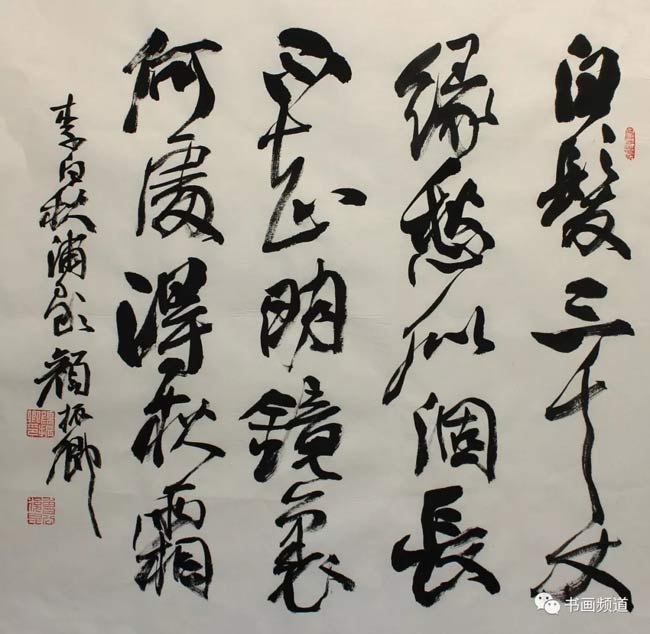 白髮三千丈
緣愁似個長
不知明鏡裏
何處得秋霜
李白秋浦歌 顏振卿
书画频道